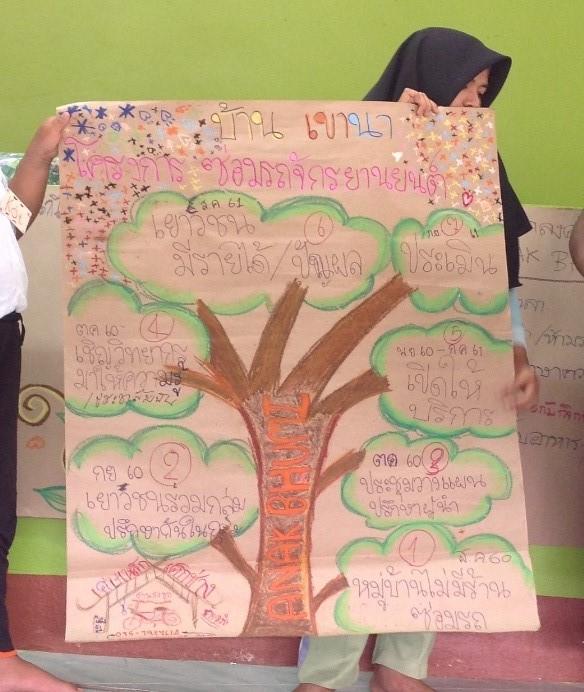 บ้าน เขานา
โครงการ ซ่อมรถจักรยานยนต์
ธค 61 6
เยาวชน
มีรายได้/ปันผล
7
ประเมิน
ตค 60 4
เชิญวิทยากร
มาให้ความรู้
5
พย 60 - ธค 61
เปิดให้
บริการ
กย 60 2
เยาวชนรวมกลุ่ม
ปรึกษากันในกลุ่ม
ตค 60 3
ประชุมวางแผน
ปรึกษาผู้นำ
1 ส.ค 60
หมู่บ้านไม่มีร้าน
ซ่อมรถ
ANAK BHUMI